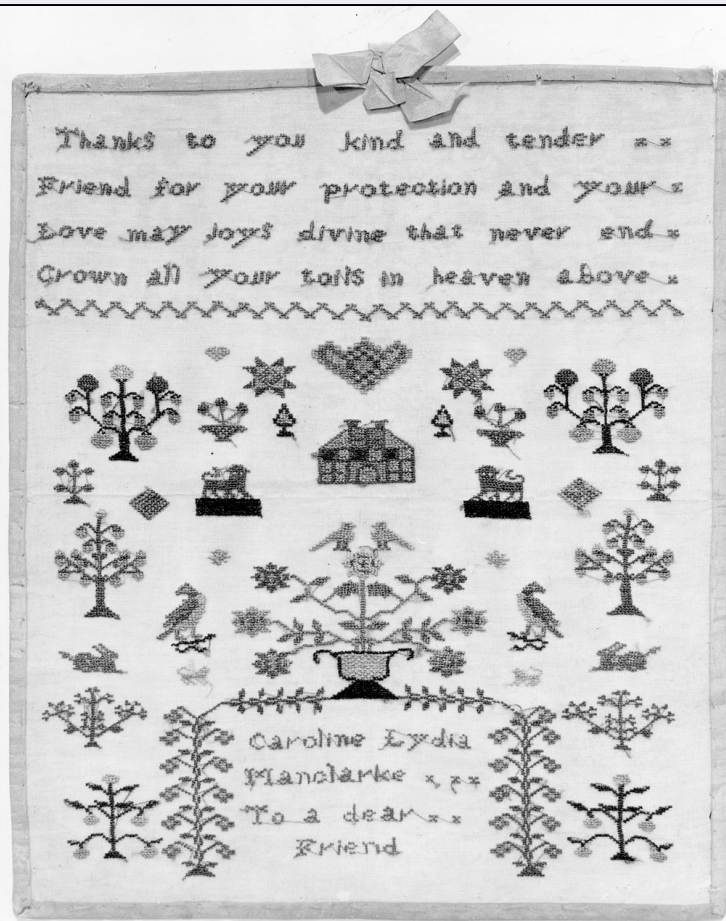 Thanks to you kind and tender
Friend for your protection and your
Love may joys divine that never end
Crown all your toils in heaven above
Caroline Lydia
Manclarke
To a dear
Friend